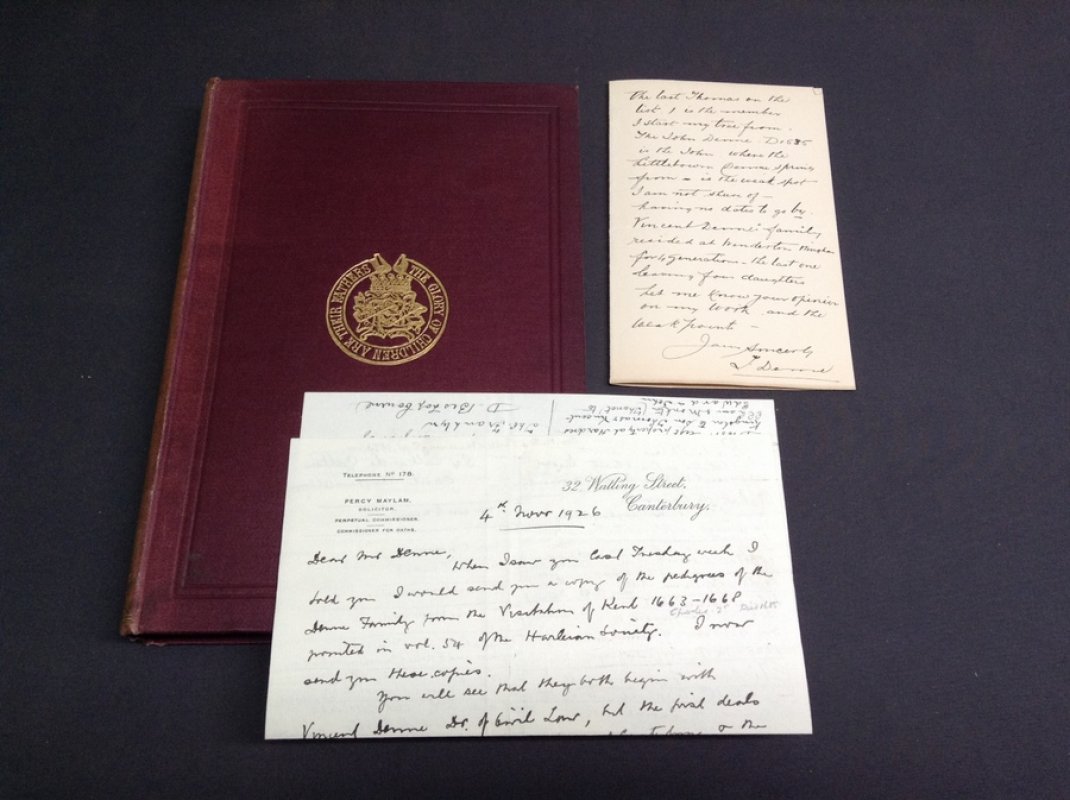 THE GLORY OF CHILDREN ARE THEIR FATHERS
the last Thomas on the
list 1 is the member
I start my tree from.
The John Denne D1535
is the John where the
Littlebourn Dennes spring
from - is the weak spot
I am not shure of -
having no dates to go by.
Vincent Denne's family
resided at Wenderton Wingham
for 4 generations - the last one
leaving four daughters
Let me know your opinion
on my work and the
weak points -
I am Sincerely
T Denne
TELEPHONE Nº 178.
PERCY MAYLAM.
SOLICITOR.
PERPETUAL COMMISSIONER.
COMMISSIONER FOR OATHS.
32, Watling Street,
Canterbury.
4th Novr 1926
Dear Mr Denne,
When I saw you last Tuesday week I
told you I would send you a copy of the pedigrees of the
Denne Family from the Visitation of Kent 1663-1668
Charles 2nd
printed in vol. 54 of the Harleian Society. I now
send you these copies.
You will see that they both begin with
Vincent Denne Dr. of Civil Law, but the first deals